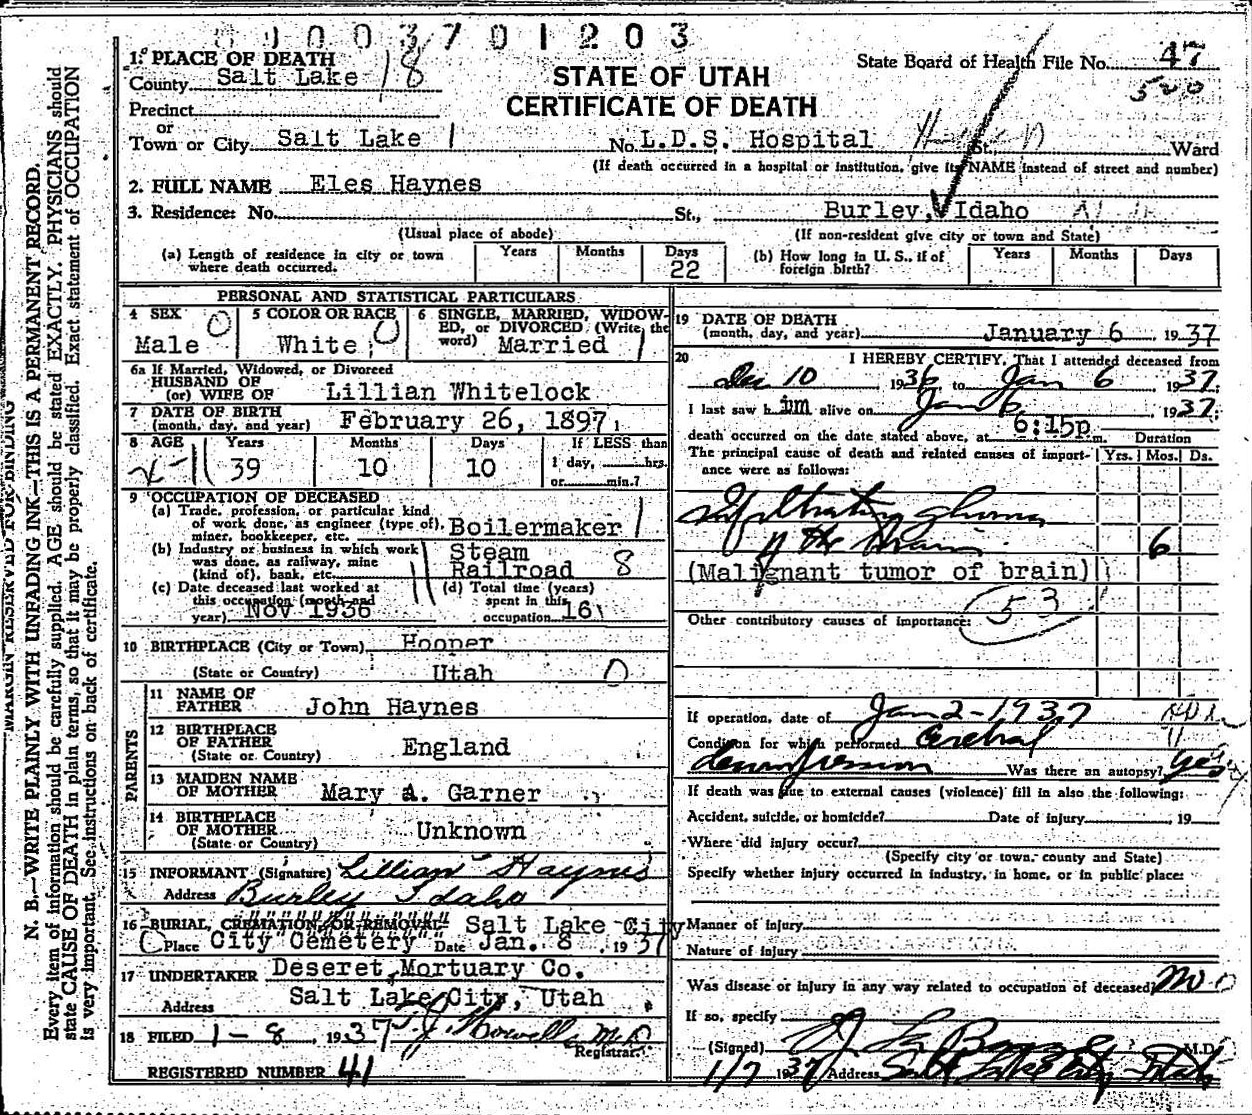 0003701203
1. PLACE OF DEATH
County Salt Lake 18
STATE OF UTAH
CERTIFICATE OF DEATH
State Board of Health File No. 47
500
Precinct
or
Town or City Salt Lake 1 No. L.D.S. Hospital St. Ward
(If death occurred in a hospital or institution, give its NAME instead of street and number)
2. FULL NAME Eles Haynes
3. Residence: No. St., Burley, Idaho
(Usual place of abode) (If non-resident give city or town and State)
(a) Length of residence in city or town where death occurred. Years Months Days 22
(b) How long in U. S., if of foreign birth? Years Months Days
PERSONAL AND STATISTICAL PARTICULARS
4 SEX Male 0
5 COLOR OR RACE White 0
6 SINGLE, MARRIED, WIDOWED, or DIVORCED (Write the word) Married 1
6a If Married, Widowed, or Divorced
HUSBAND OF
(or) WIFE OF Lillian Whitelock
7 DATE OF BIRTH
(month, day, and year) February 26, 1897
8 AGE Years 39 Months 10 Days 10 If LESS than 1 day, hrs. or min.?
9 OCCUPATION OF DECEASED
(a) Trade, profession, or particular kind
of work done, as engineer (type of),
miner, bookkeeper, etc. Boilermaker 1
(b) Industry or business in which work
was done, as railway, mine
(kind of), bank, etc. Steam Railroad 8
(c) Date deceased last worked at
this occupation (month and
year) Nov 1936
(d) Total time (years)
spent in this
occupation 16
10 BIRTHPLACE (City or Town) Hooper
(State or Country) Utah 0
PARENTS
11 NAME OF
FATHER John Haynes
12 BIRTHPLACE
OF FATHER
(State or Country) England
13 MAIDEN NAME
OF MOTHER Mary A. Garner
14 BIRTHPLACE
OF MOTHER
(State or Country) Unknown
15 INFORMANT (Signature) Lillian Haynes
Address Burley Idaho
16 BURIAL, CREMATION, OR REMOVAL Salt Lake City
Place City Cemetery Date Jan. 8, 1937
17 UNDERTAKER Deseret Mortuary Co.
Address Salt Lake City, Utah
18 FILED 1-8, 1937 T. J. Howells M.D.
Registrar.
REGISTERED NUMBER 41
19 DATE OF DEATH
(month, day, and year) January 6, 1937
20 I HEREBY CERTIFY, That I attended deceased from
Dec 10 1936, to Jan 6, 1937;
I last saw him alive on Jan 6, 1937;
death occurred on the date stated above, at 6:15p m. Duration
The principal cause of death and related causes of importance were as follows: Yrs. Mos. Ds.
Infiltrating glioma
of the brain 6
(Malignant tumor of brain)
53
Other contributory causes of importance:
If operation, date of Jan 2-1937
Condition for which performed Cerebral
decompression Was there an autopsy? yes
If death was due to external causes (violence) fill in also the following:
Accident, suicide, or homicide? Date of injury , 19
Where did injury occur?
(Specify city or town, county and State)
Specify whether injury occurred in industry, in home, or in public place:
Manner of injury
Nature of injury
Was disease or injury in any way related to occupation of deceased? no 0
If so, specify
(Signed) M.D.
1/7 1937 Address Salt Lake City Utah
MARGIN RESERVED FOR BINDING
N. B.—WRITE PLAINLY WITH UNFADING INK—THIS IS A PERMANENT RECORD.
Every item of information should be carefully supplied. AGE should be stated EXACTLY. PHYSICIANS should
state CAUSE OF DEATH in plain terms, so that it may be properly classified. Exact statement of OCCUPATION
is very important. See instructions on back of certificate.